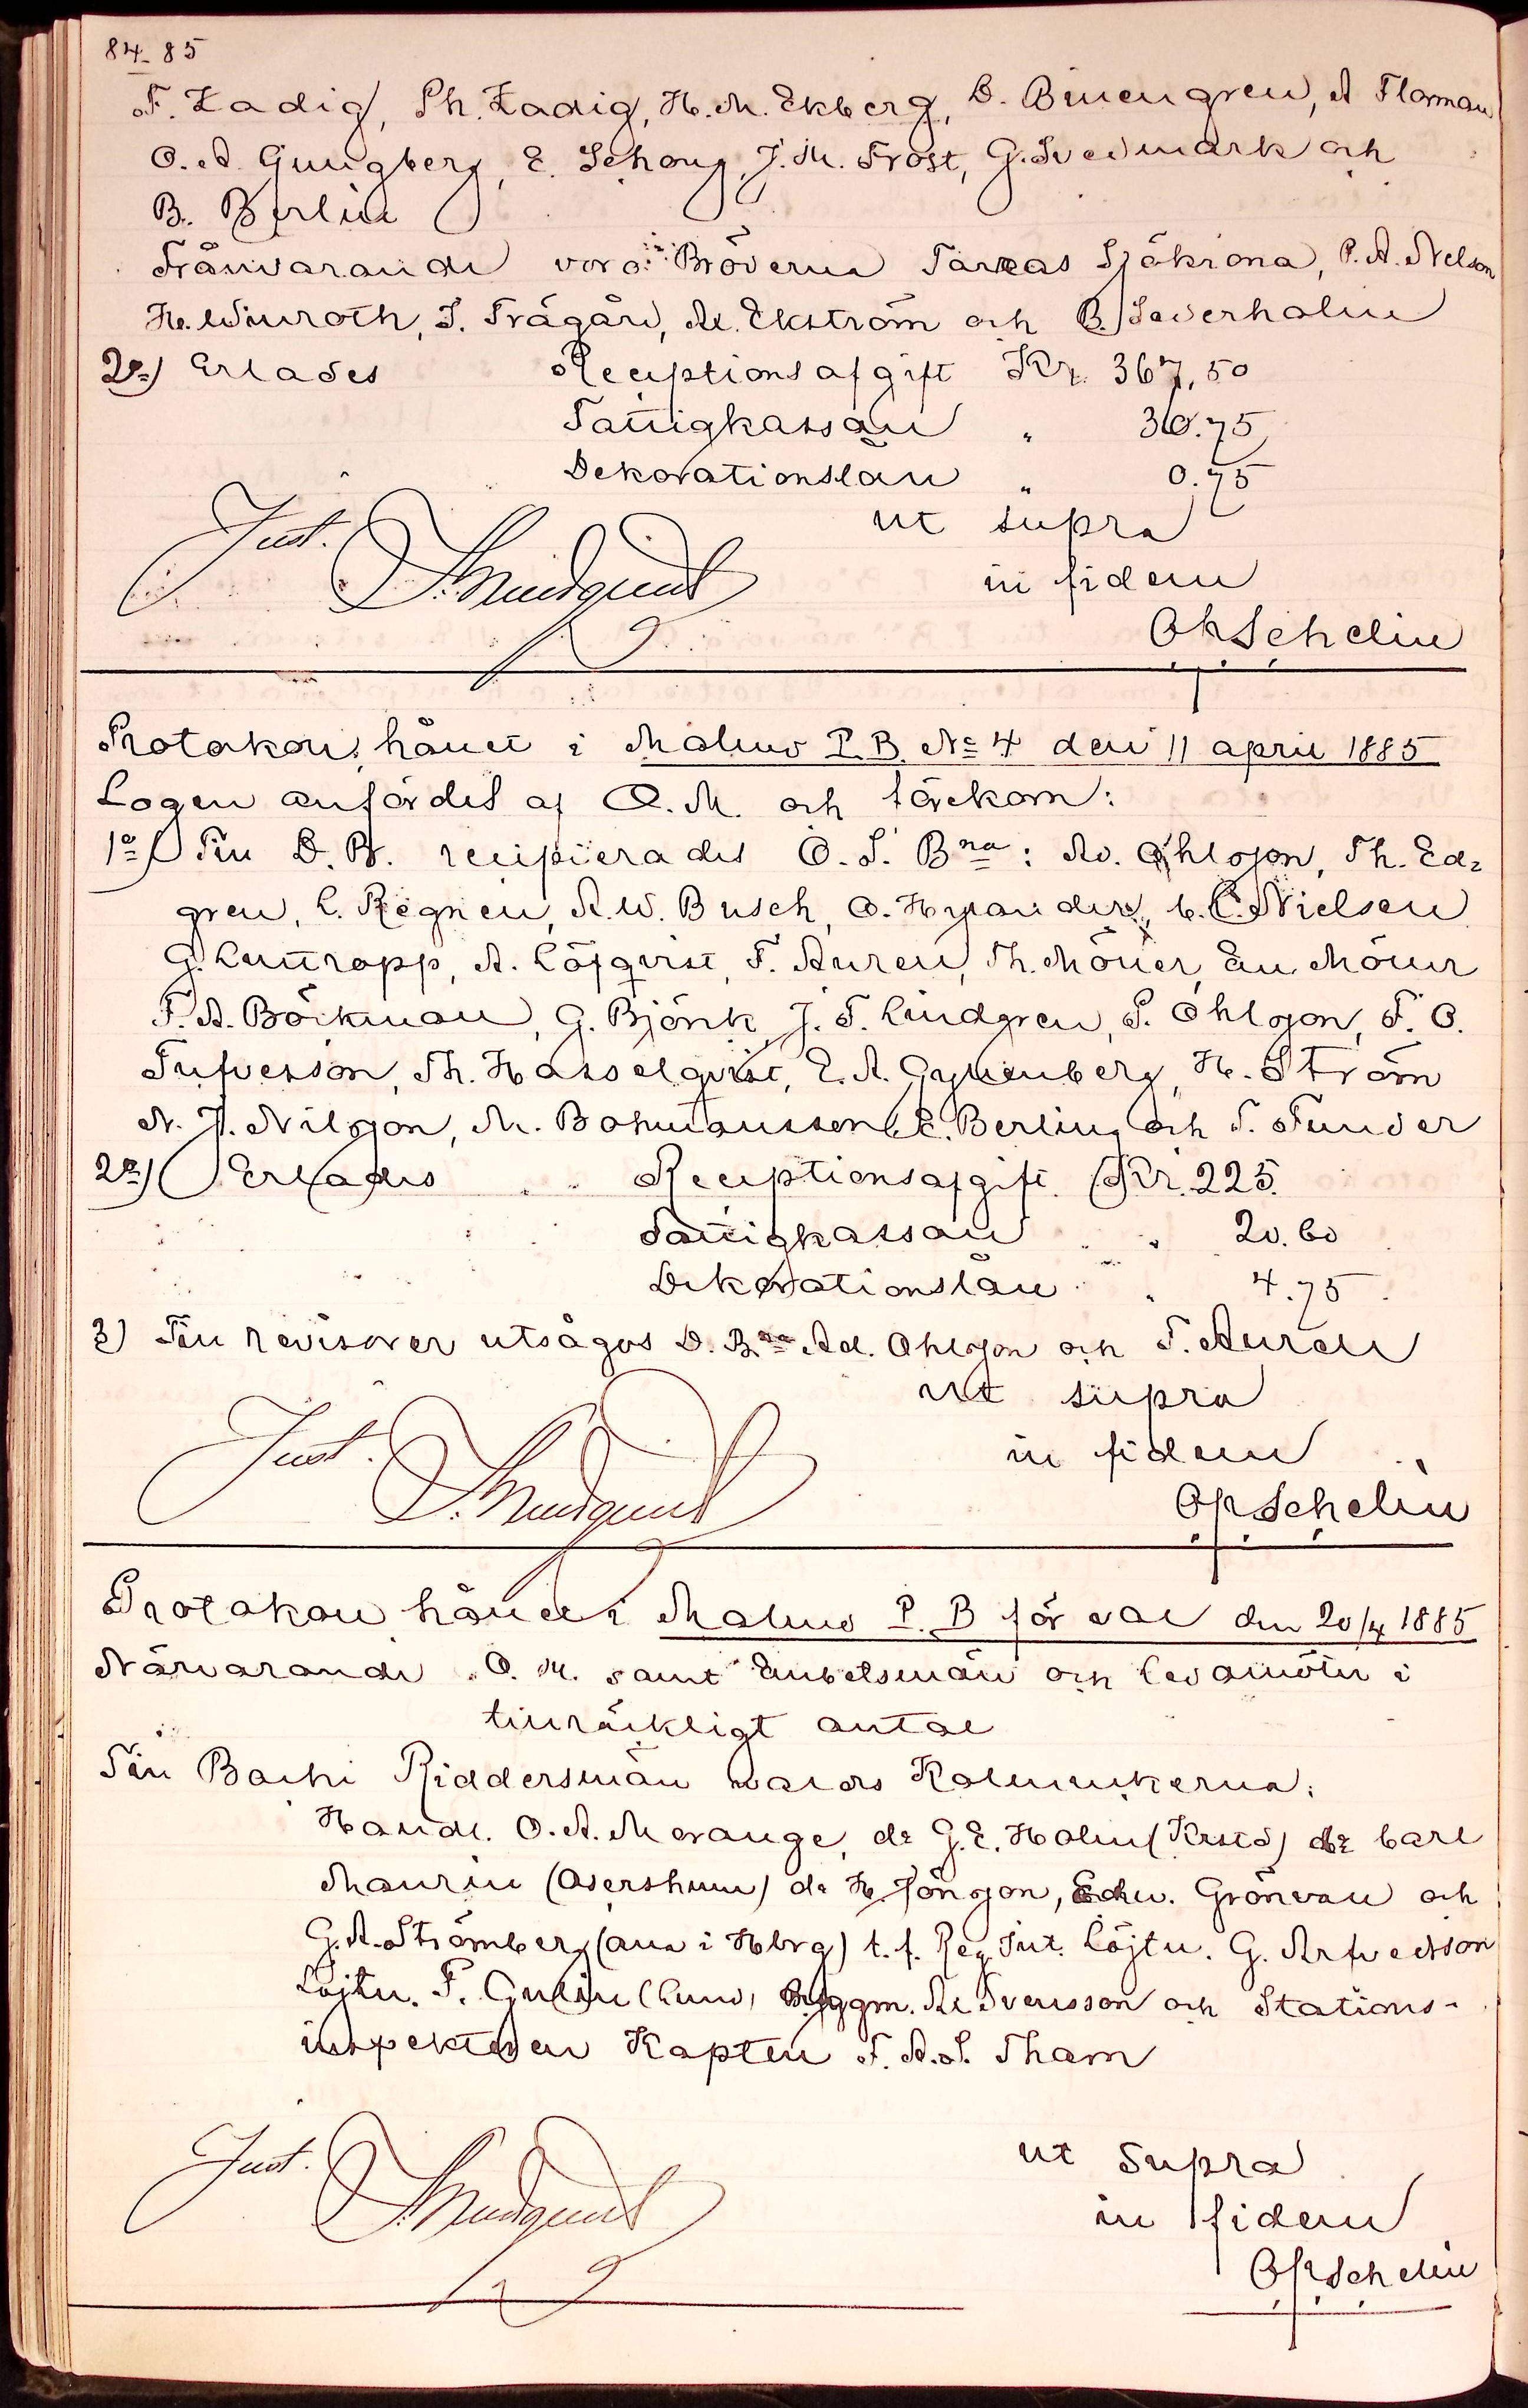 84-85
F. Zadig, Ph. Zadig, H. M. Ekberg, D. Binengren, A Florman
O. A. Ljungberg, E. Schoug, J. M. Frost, G. Svedmark och
B. Berlin
Frånvarande voro Bröderna Taras Sjökrona, P. A. Nelson
He. Winroth, I. Trägård, Al. Ekström och B. Sederholm
2o) Erlades Receptionsafgift Kr. 367,50
Fattigkassan " 30.75
Dekorationslån " 0.75
ut supra
Just. in fidem
OPSchelin
Protokoll, hållet i Malmö P. B. No 4 den 11 april 1885
Logen anfördes af O. M. och förekom:
1o) Till D. B. recipierades O. S. Bna: Ad. Ohlsson, Th. Ed=
gren, C. Regnell, A. W. Busch, O. Hylander, C. C. Nielsen
G. Luttropp, A. Löfqvist, F. Auren, Th. Möller, Em Möller
F. A. Böckman, G. Björck, J. F. Lindgren, P. Ohlsson, F. O.
Tufvesson, Th. Hasselqvist, E. A. Gyllenberg, H. Ström
N. J. Nilsson, M. Bohmansson, E. Berling och T. Tunder
2o) Erlades Receptionsafgift Kr. 225.
Fattigkassan " 20.60
Dekorationslån " 4.75
3) Till revisorer utsågos D. Bna Ad. Ohlsson och F. Auren
ut supra
Just. in fidem
OPSchelin
Protokoll hållet i Malmö P. B för val den 20/4 1885
Närvarande O. M. samt Embetsmän och ledamöter i
tillräckligt antal
Till Bachi Riddersmän valdes Kalmukerna:
Handl. O. A. Morange, do G. E. Holm (Krstd) do Carl
Maurin (Oskarshamn) do H. Jönsson, Edw. Grönvall och
G. A. Strömberg (alla i Hbrg) t. f. Reg. Int. Löjtn. G. Arfvedsson
Löjtn. F. Gullin (Lund) Byggm. Al Svensson och Stations-
inspektoren Kapten F. A. S. Tham
Just. ut supra
in fidem
OPSchelin